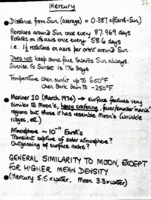 Mercury
Distance from Sun (average) = 0.387 × (Earth-Sun)
Revolves around Sun once every 87.969 days
Rotates on its axis once every 58.6 days
i.e. 1½ rotations on axis per orbit around Sun.
Does not keep same face towards Sun always.
Sunrise to Sunset is 176 Days
Temperature when sunlit up to 650°F
when dark down to -250°F
Mariner 10 (March, 1974) → surface features very
similar to Moon's,
regions but those it has resemble Moon's (wrinkle
ridges, etc)
Atmosphere ~ 10 Earth's
Transient capture of solar atmosphere?
Outgassing of surface rocks?
GENERAL SIMILARITY TO MOON, EXCEPT
FOR HIGHER MEAN DENSITY
(Mercury 5.5 × water, Moon 3.3 × water)